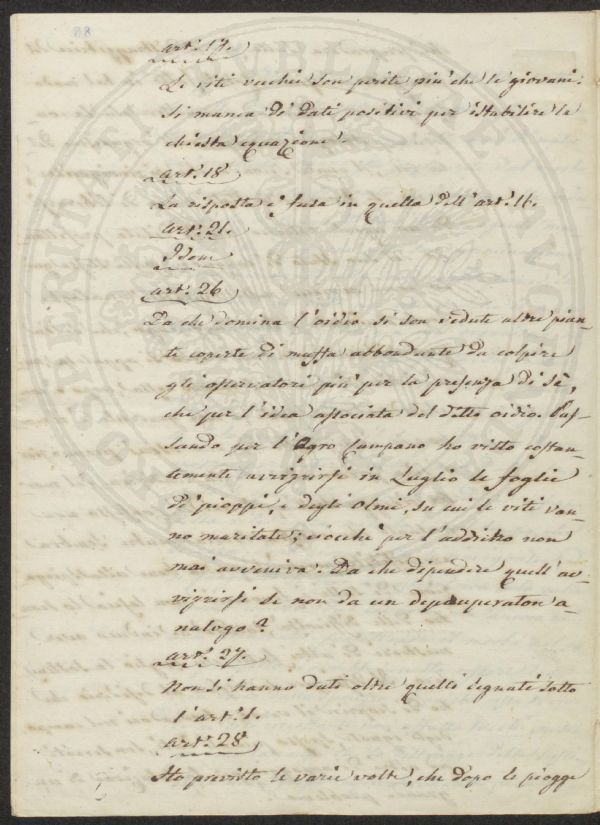 88
art.° 17.
Le viti vecchie son perite più che le giovani.
Si manca di dati positivi per istabilire la
chiesta equazione.
art.° 18
La risposta è fusa in quella dell'art.° 16.
art.° 21.
Idem
art.° 26
Da che domina l'oidio si son vedute altre pian-
te coperte di muffa abbondante da colpire
gli osservatori più per la presenza di sè,
che per l'idea associata del detto oidio. Pas-
sando per l'Agro Campano ho visto costan-
temente avvizzirsi in Luglio le foglie
di pioppi, e degli olmi, su cui le viti van-
no maritate; ciocchè per l'addietro non
mai avveniva. Da che dipendere quell'av-
vizzirsi se non da un depauperaton a-
nalogo?
art.° 27.
Non si hanno dati oltre quelli segnati sotto
l'art.° 1.
art.° 28
Ho previsto le varie volte, che dopo le piogge